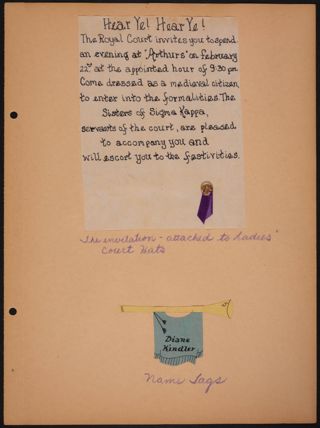 Hear Ye! Hear Ye!
The Royal Court invites you to spend
an evening at "Arthurs" on february
22nd at the appointed hour of 9:30 pm.
Come dressed as a medieval citizen
to enter into the formalities. The
Sisters of Sigma Kappa,
servants of the court, are pleased
to accompany you and
will escort you to the festivities.
The invitation - attached to Ladies'
Court Hats
Diane
Kindler
Name Tags